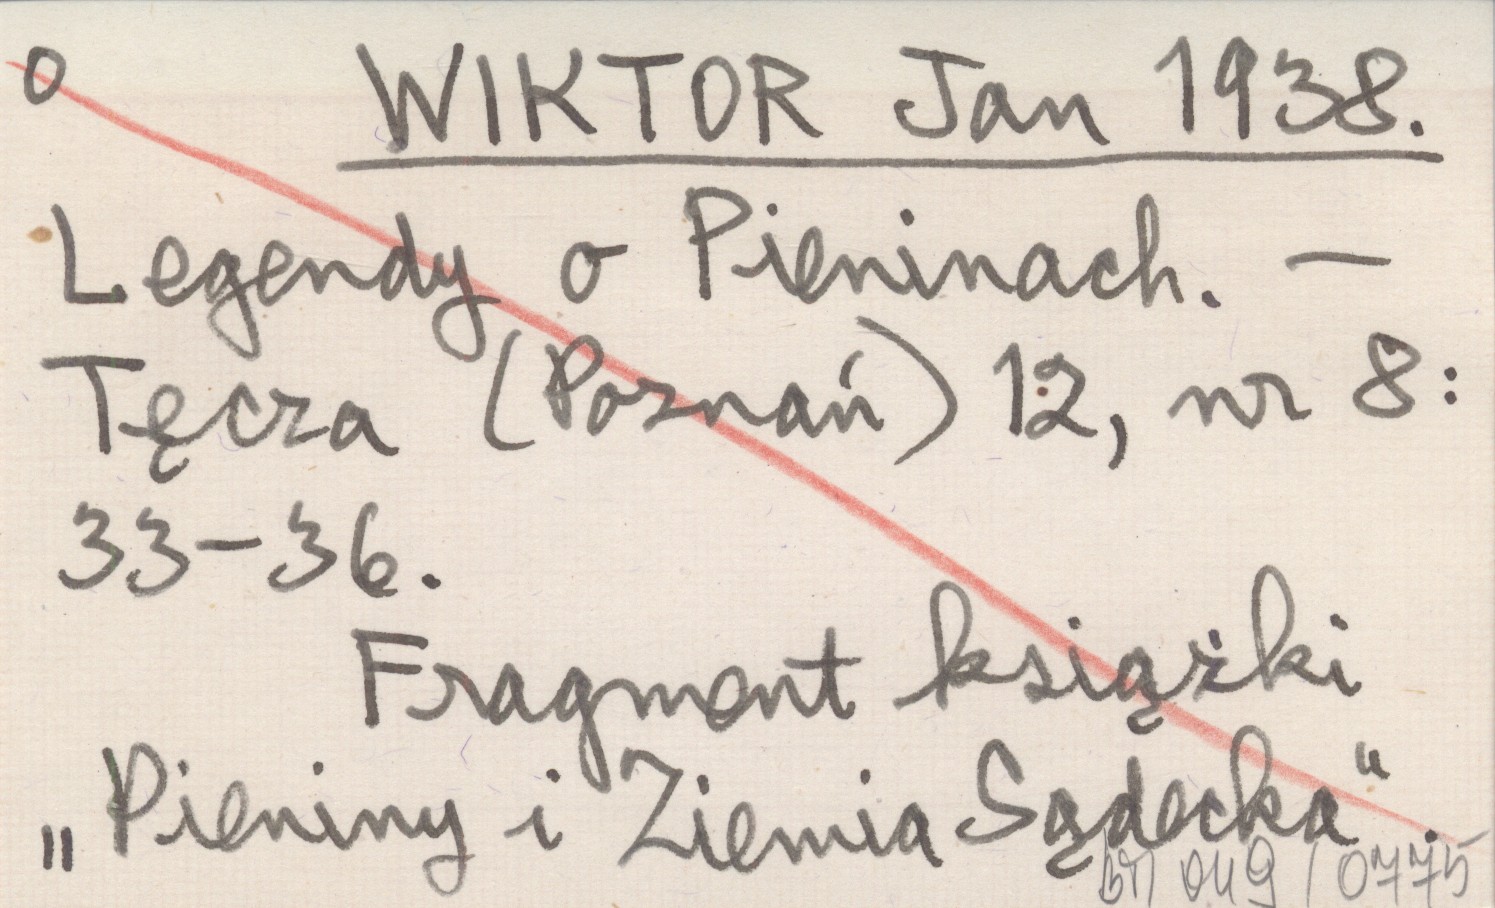 o WIKTOR Jan 1938.
Legendy o Pieninach. —
Tęcza (Poznań) 12, nr 8:
33-36.
Fragment książki
„Pieniny i Ziemia Sądecka”.
049 / 0775